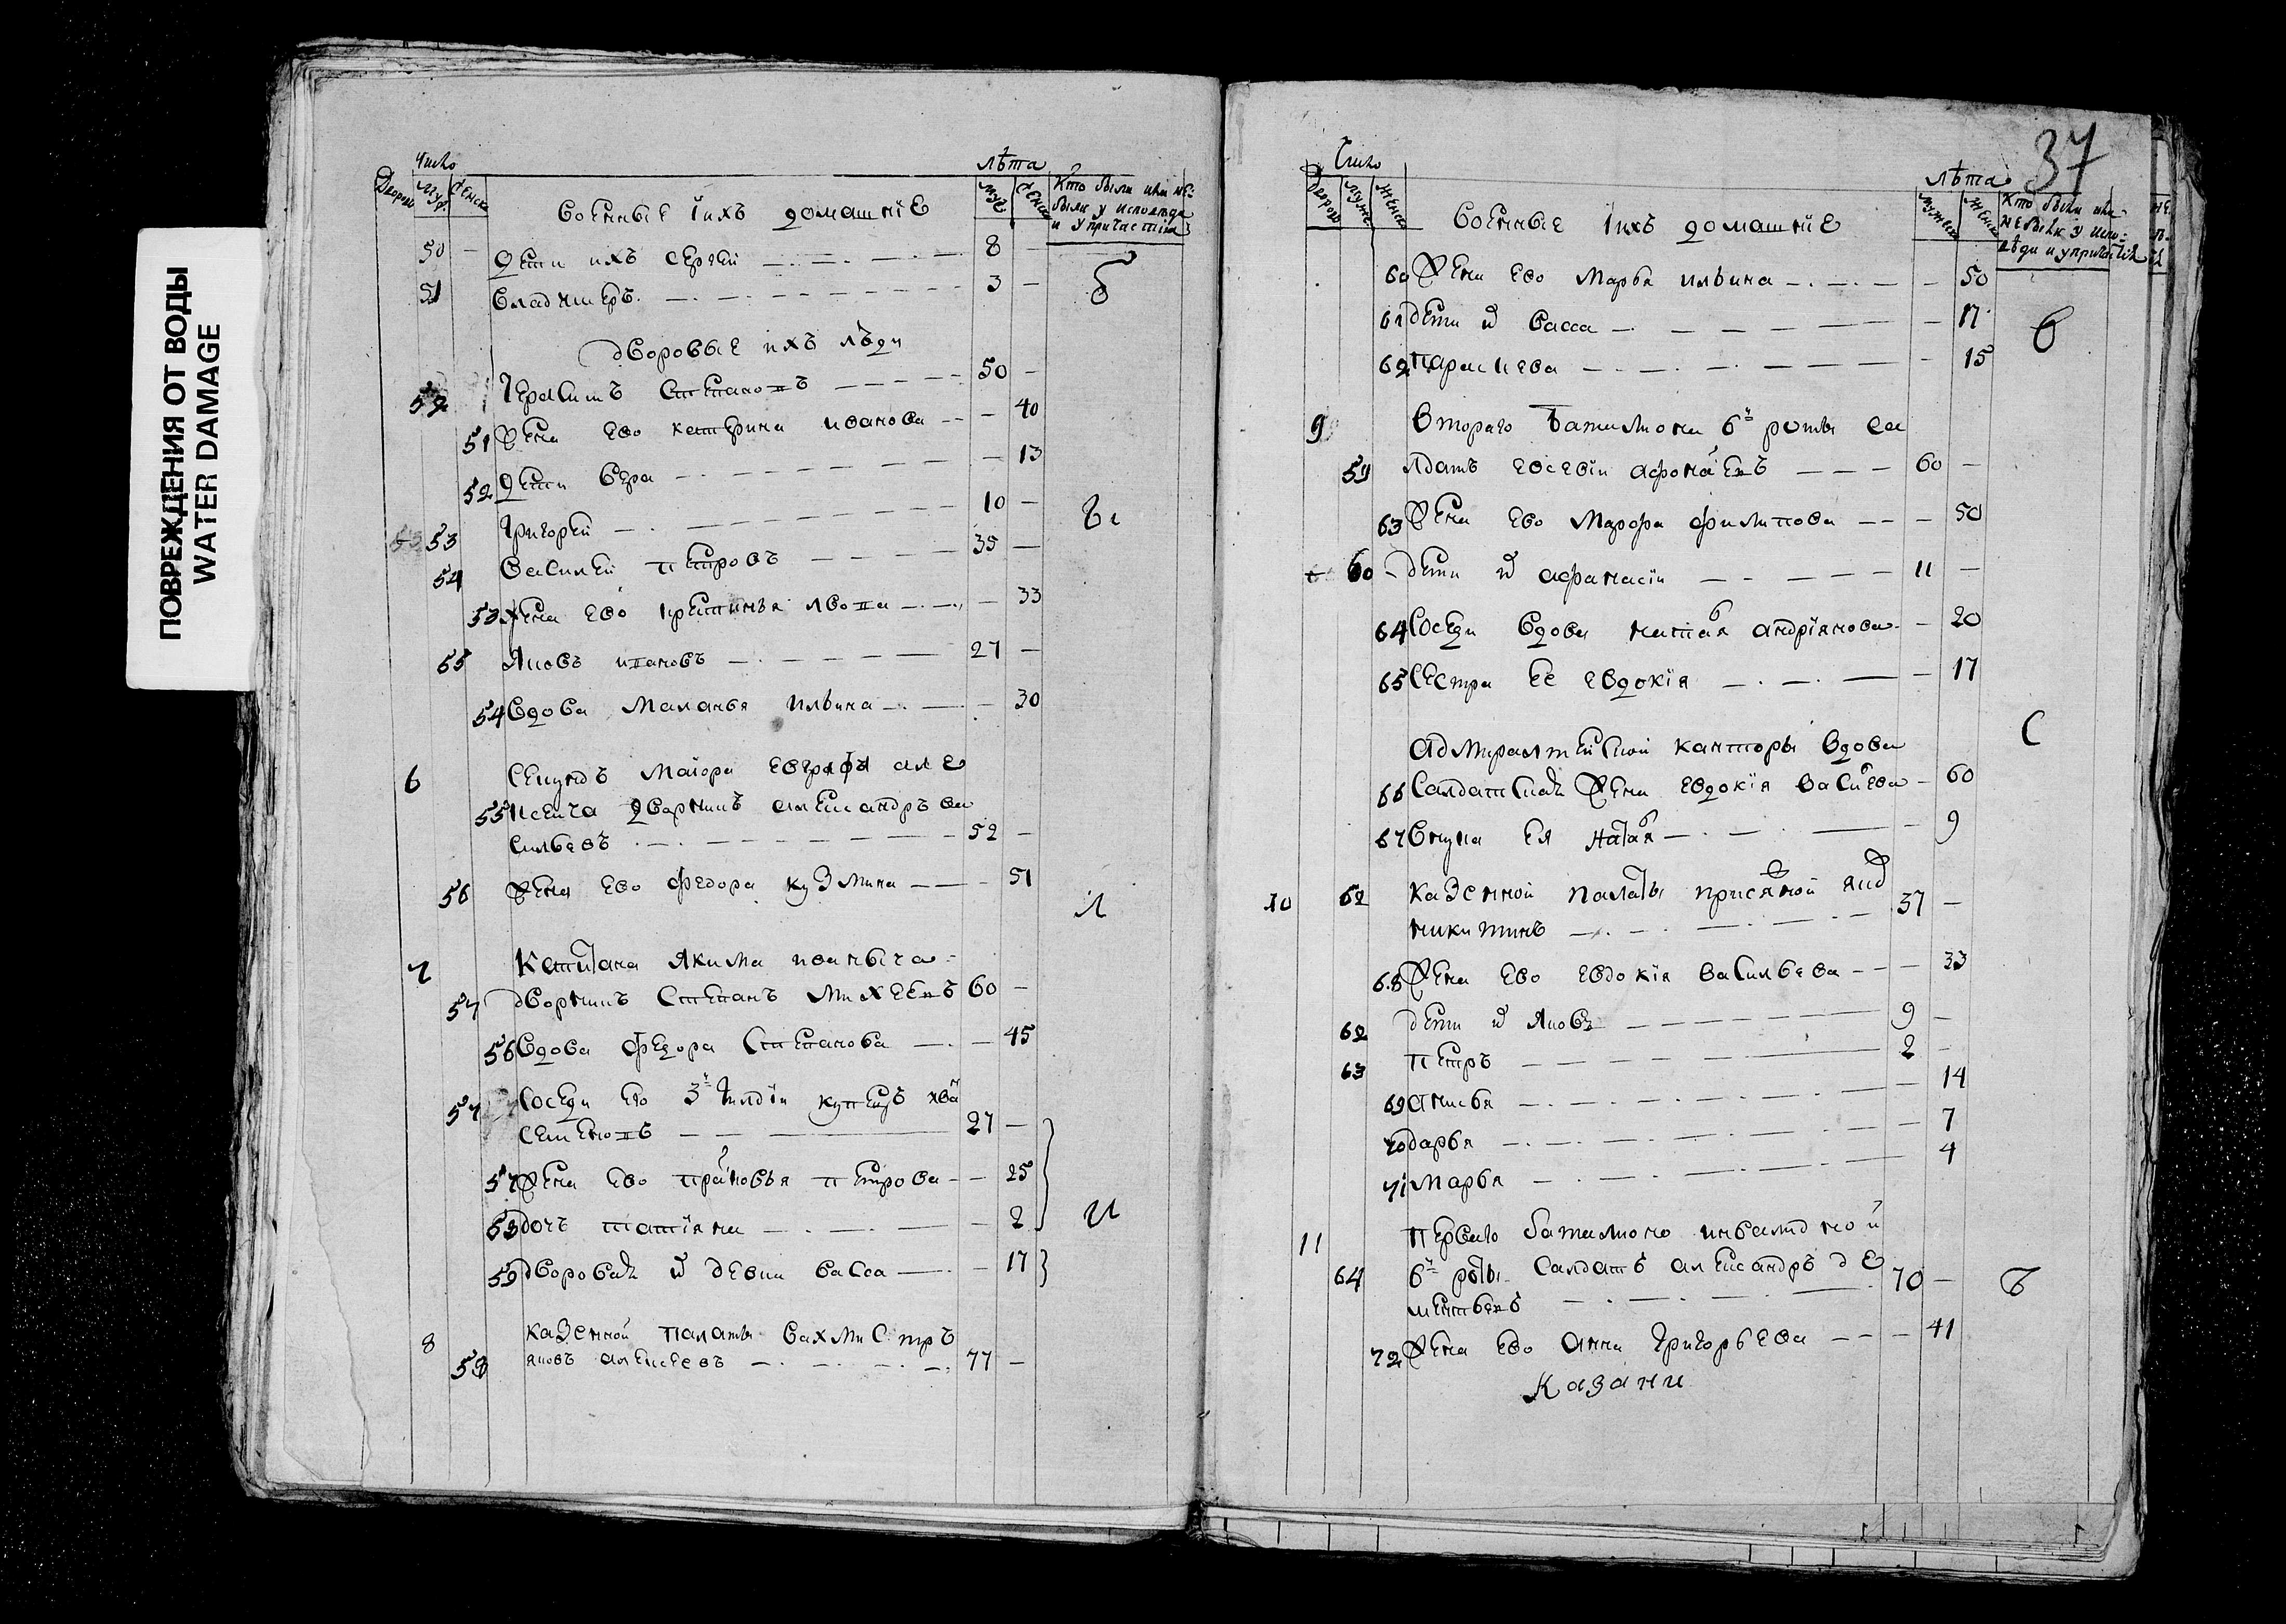 ПОВРЕЖДЕНИЯ ОТ ВОДЫ
WATER DAMAGE
Число
Дворов Муж. Женск
Военные ихъ домашнїе
лѣта
муж женск
Кто были или не
были у исповеди
и у причастия
50 — дети ихъ сергей 8 —
51 владимеръ 3 —
б
дворовые ихъ люди
52 Герасимъ Степановъ 50 —
51 Жена ево катерина иванова — 40
52 дети вера — 13
53 Григорей 10 —
54 василей петровъ 35 —
53 Жена ево кристинья — 33
55 Яковъ ивановъ 27 —
54 вдова Маланья Ильина — 30
6 Секундъ Маiора евграфа але
55 ксеича дворникъ александръ ва
сильевъ 52 —
56 Жена ево федора кузмина — 51
л
7 Капитана Якима иваныча
57 дворникъ Степанъ Михеевъ 60 —
56 вдова федора Степанова — 45
57 Соседи ево 3й гилдїи купецъ
семеновъ 27 —
57 Жена ево прасковья петрова — 25
58 дочь татїяна — 2
и
59 дворовая девки васса — 17
8 казенной палаты вахмистръ
58 яковъ алексеевъ 77 —
37
Число
дворов мужс женск
Военные ихъ домашнїе
лѣта
мужеска женска
Кто были или
не были у испо
веди и у причастия
60 Жена ево Марья ильина — 50
61 дети васса — 17
62 параскева — 15
в
9 Втораго баталиона 6й роты са
59 лдатъ евсевїи афонасевъ 60 —
63 Жена ево Марфа филипова — 50
60 дети афанасїи 11 —
64 Соседи вдова наталья андрїянова — 20
65 Сестра ее евдокїя — 17
С
адмиралтейской канторы вдова
66 Салдатская Жена евдокїя василева — 60
67 внука ея наталья — 9
10 62 казенной палаты присяжной
никитинъ 37 —
68 Жена ево евдокїя васильева — 33
62 дети Яковъ 9 —
63 петръ 2 —
69 анисья — 14
70 дарья — 7
71 Марья — 4
11 перваго баталиона инвалидной
64 6й роты салдатъ александръ де
ментьевъ 70 —
72 Жена ево анна григорьева — 41
Казани